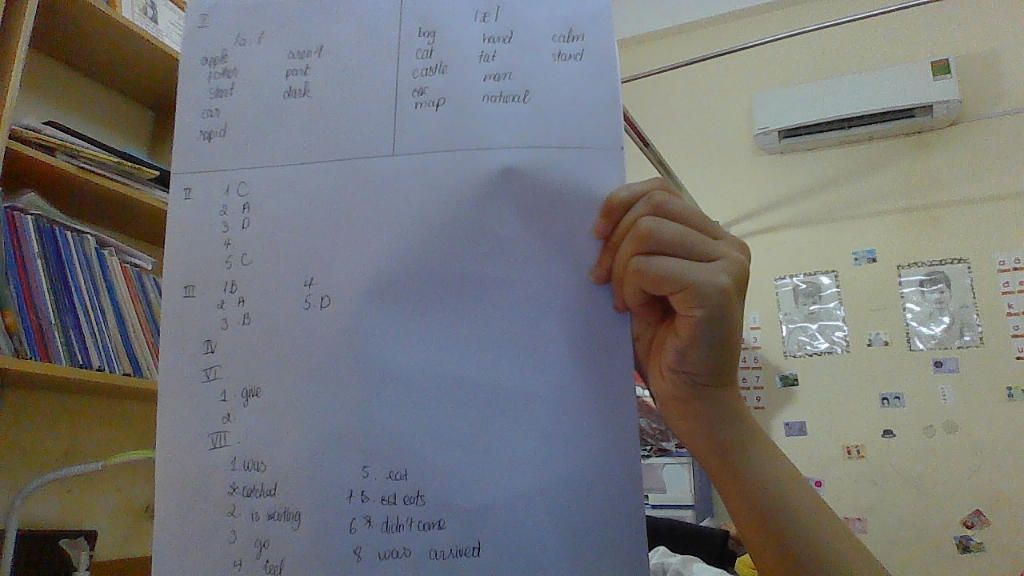 I
/a:/
/æ/
apple
aren't
father
part
start
dark
car
rapid
bag
hand
calm
cat
fat
stand
castle
man
map
natural
II
1 C
2 A
3 D
4
5 C
III
1 B
4
2 A
5. D
3 B
IV
VI
1. give
2
VII
1. was
5. eat
2. is waiting
eats
3 go
6 didn't come
4 feel
8 was arrived